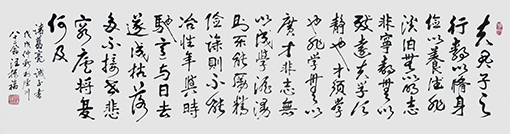 夫君子之
行靜以脩身
儉以養德非
淡泊無以明志
非寧靜無以
致遠夫學須
靜也才須學
也非學無以
廣才非志無
以成學淫漫
則不能勵精
險躁則不能
冶性年與時
馳意與日去
遂成枯落
多不接世悲
窮廬將復
何及
諸葛亮誡子書
戊戌秋